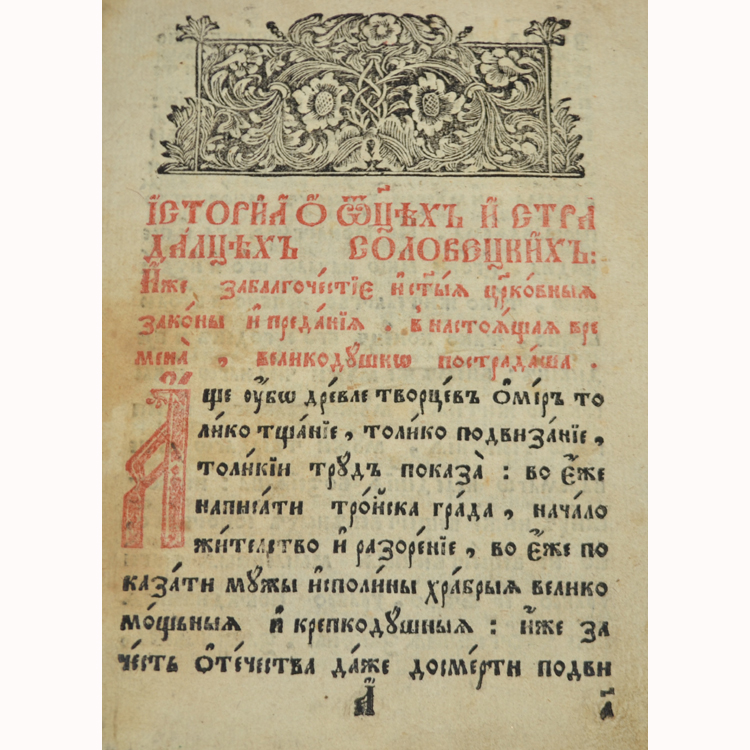 І҆СТОРІ́А Ѡ҆ Ѿц҃ѢХЪ И҆ СТРА
ДА́ЛЦѢХЪ СОЛОВЕЦКИ́ХЪ:
И҆́же, забалгоче́стїе и҆ ст҃ы́ѧ цр҃ко́вныѧ
зако́ны и҆ преда́нїѧ. в настоѧ́щаѧ вре
мена̀, великодꙋ́шнѡ пострада́ша.
А҆́ще ᲂу҆́бѡ дре́вле творце́въ Ѻ҆ми́ръ то
ли́ко тща́нїе, толи́ко подвиза́нїе,
толи́кїи трꙋ́дъ показа̀: во є҆́же
написа́ти тро́йска гра́да, нача́ло
жи́телство и҆ разоре́нїе, во є҆́же по
каза́ти мꙋ́жы и҆споли́ны хра́брыѧ велико
мо́щьныѧ и҆ крепкодꙋ́шныѧ: и҆́же за
че́сть ѻ҆те́чества да́же досме́рти подви